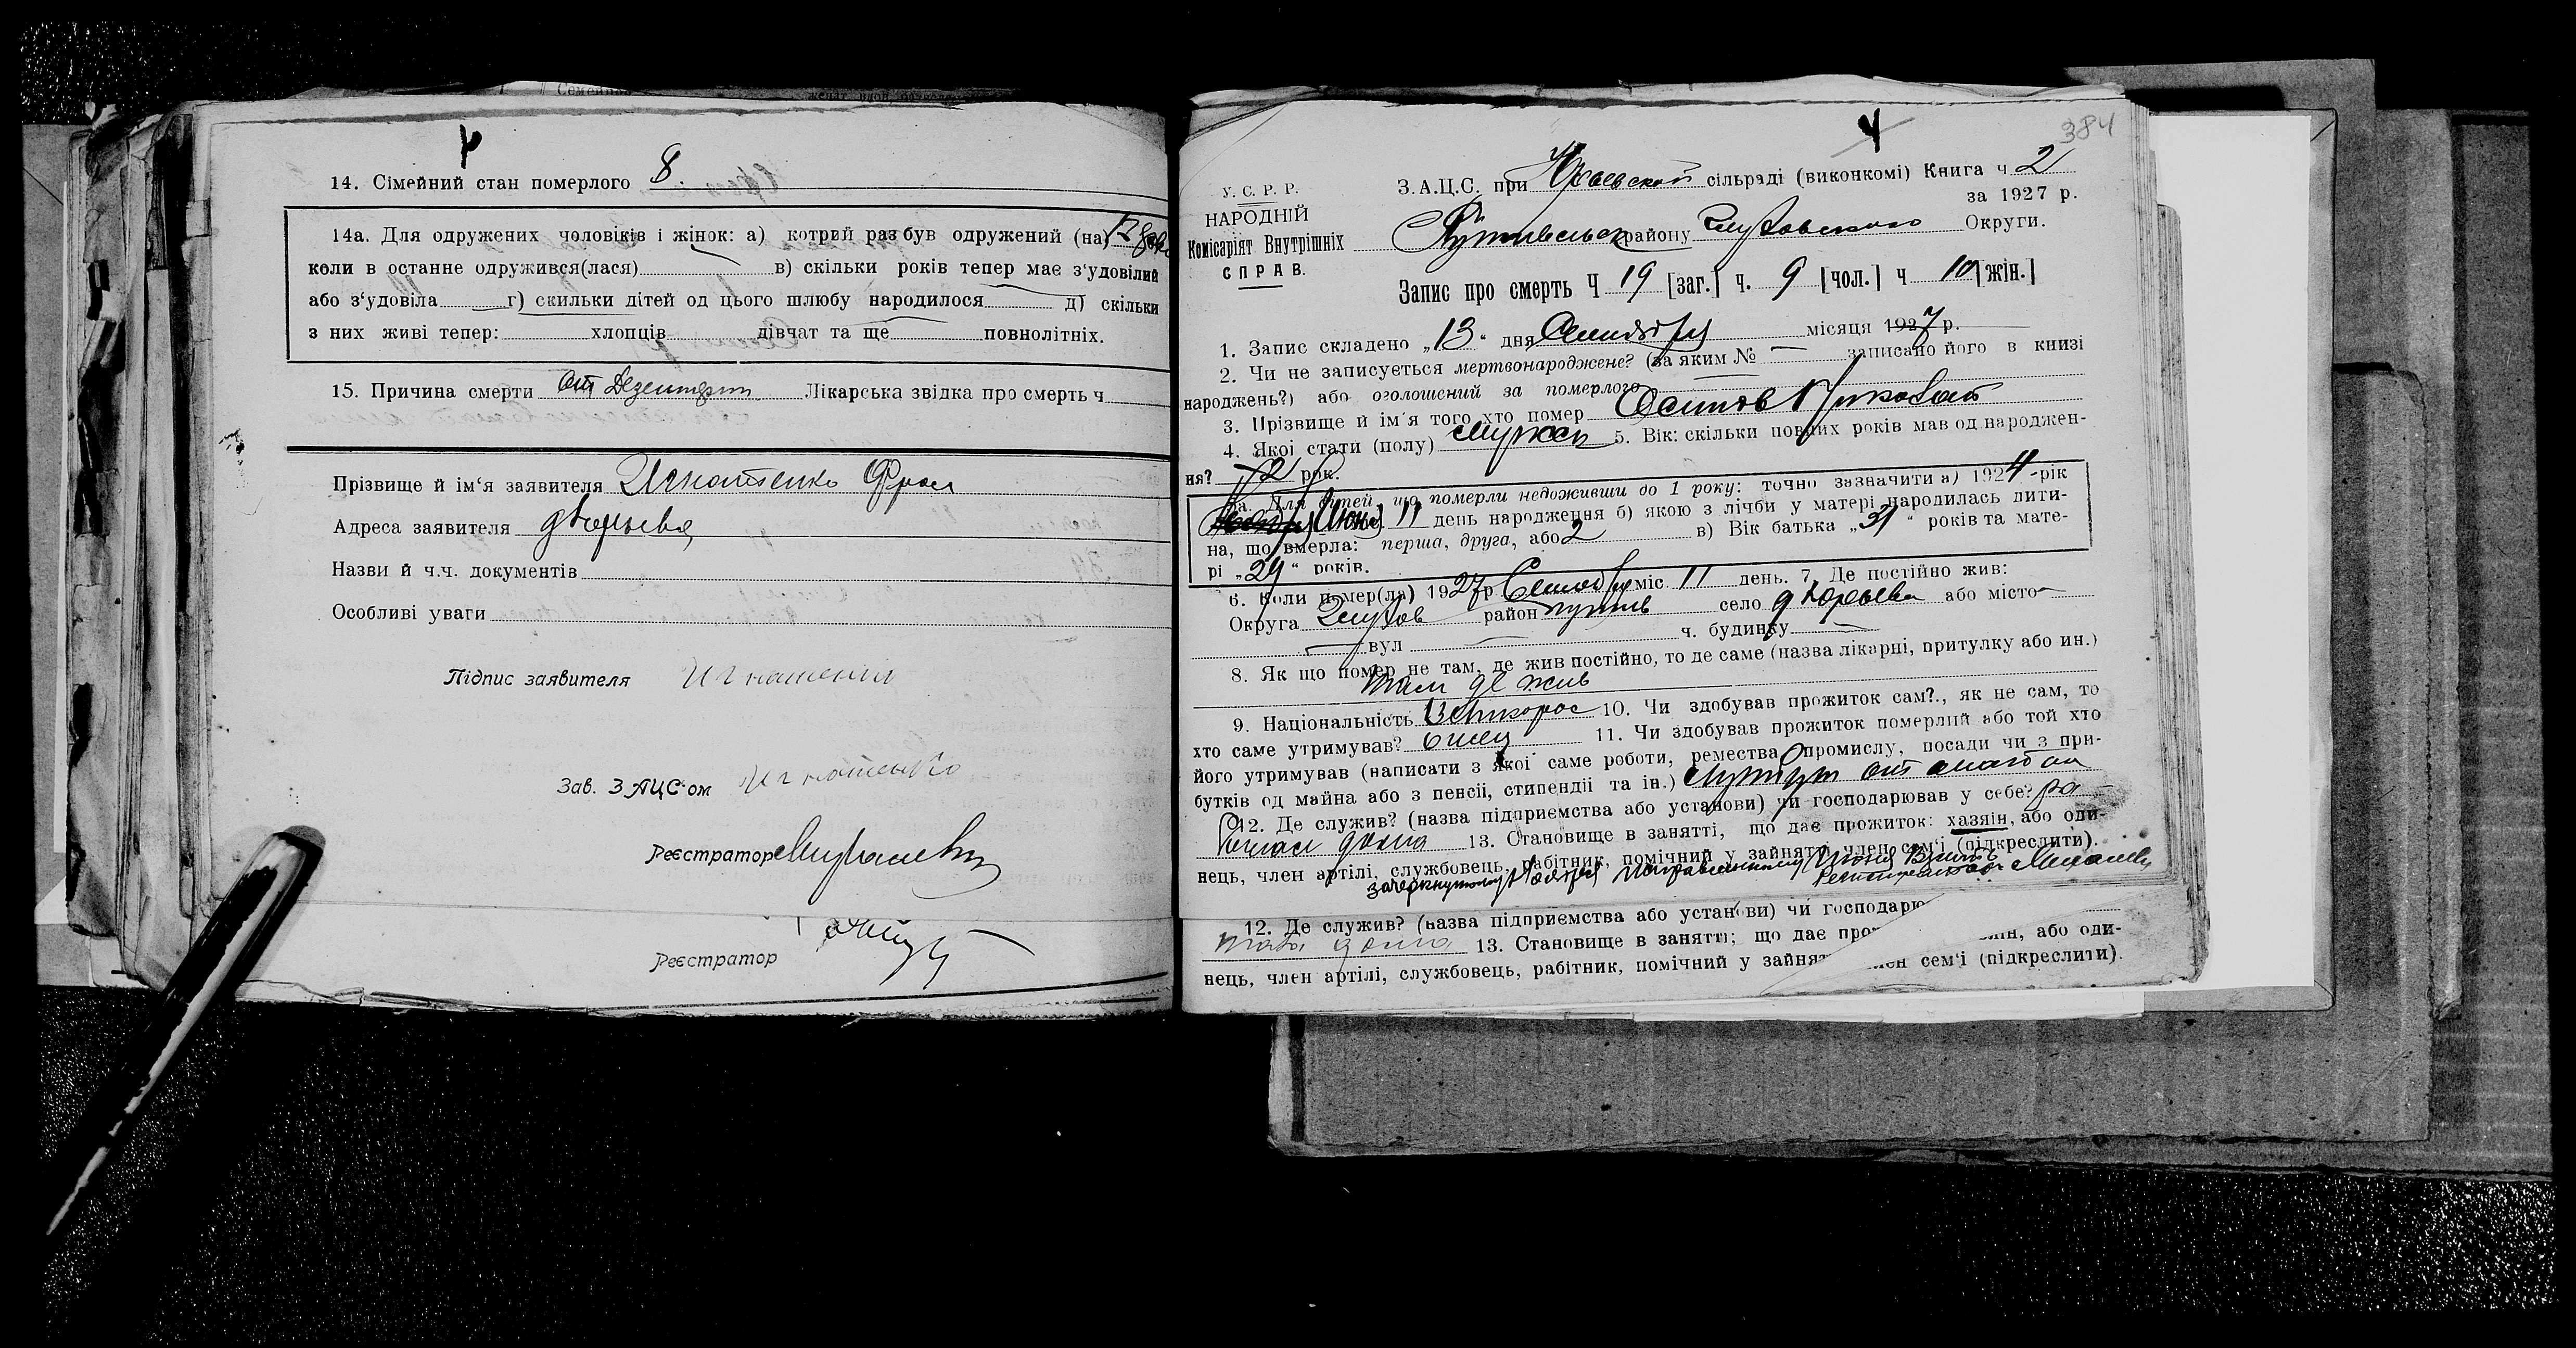 14. Сімейний стан померлого 8.
14а. Для одружених чоловіків і жінок: а) котрий раз був одружений (на)
коли в останне одружився(лася) в) скільки років тепер має з'удовілий
або з'удовіла г) скильки дітей од цього шлюбу народилося д) скільки
з них живі тепер: хлопців дівчат та ще повнолітніх.
15. Причина смерти От Дезентери Лікарська звідка про смерть ч
Прізвище й ім'я заявителя Игнатенко Фрол
Адреса заявителя
Назви й ч.ч. документів
Особливі уваги
Підпис заявителя Игнатенко
Зав. ЗАЦС-ом Игнатенко
Реєстратор
Реєстратор
384
У. С. Р. Р.
НАРОДНІЙ
Комісаріят Внутрішніх
СПРАВ.
З.А.Ц.С. при сільраді (виконкомі) Книга ч 2
за 1927 р.
району Глуховского Округи.
Запис про смерть Ч 19 [заг.] ч. 9 [чол.] ч 10 [жін.]
1. Запис складено „13“ дня Сентября місяця 1927 р.
2. Чи не записується мертвонароджене? (за яким № — записано його в книзі
народжень?) або оголошений за померлого
3. Прізвище й ім'я того хто помер Осипов Николай
4. Якої стати (полу) мужск 5. Вік: скільки повних років мав од народжен-
ня? 2 рок.
5а. Для дітей, що померли недоживши до 1 року: точно зазначити а) 1924-рік
(Июня) 11 день народження б) якою з лічби у матері народилась дити-
на, що вмерла: перша, друга, або 2 в) Вік батька „31“ років та мате-
рі „29“ років.
6. Коли помер(ла) 1927 р Сентябр міс. 11 день. 7. Де постійно жив:
Округа Глухов район путив село або місто —
вул — ч. будинку —
8. Як що помер не там, де жив постійно, то де саме (назва лікарні, притулку або ин.)
там де жив
9. Національність Великорос 10. Чи здобував прожиток сам?., як не сам, то
хто саме утримував? отец 11. Чи здобував прожиток померлий або той хто
його утримував (написати з якої саме роботи, ремества, промислу, посади чи з при-
бутків од майна або з пенсії, стипендії та ін.)
12. Де служив? (назва підприємства або установи) чи господарював у себе?
дома 13. Становище в занятті, що дає прожиток: хазяін, або оди-
нець, член артілі, службовець, рабітник, помічний у зайнятті член сем'ї (підкреслити).
12. Де служив? (назва підприємства або установи) чи господарю
дома 13. Становище в занятті; що дає про або оди-
нець, член артілі, службовець, рабітник, помічний у зайнят сем'ї (підкреслити).